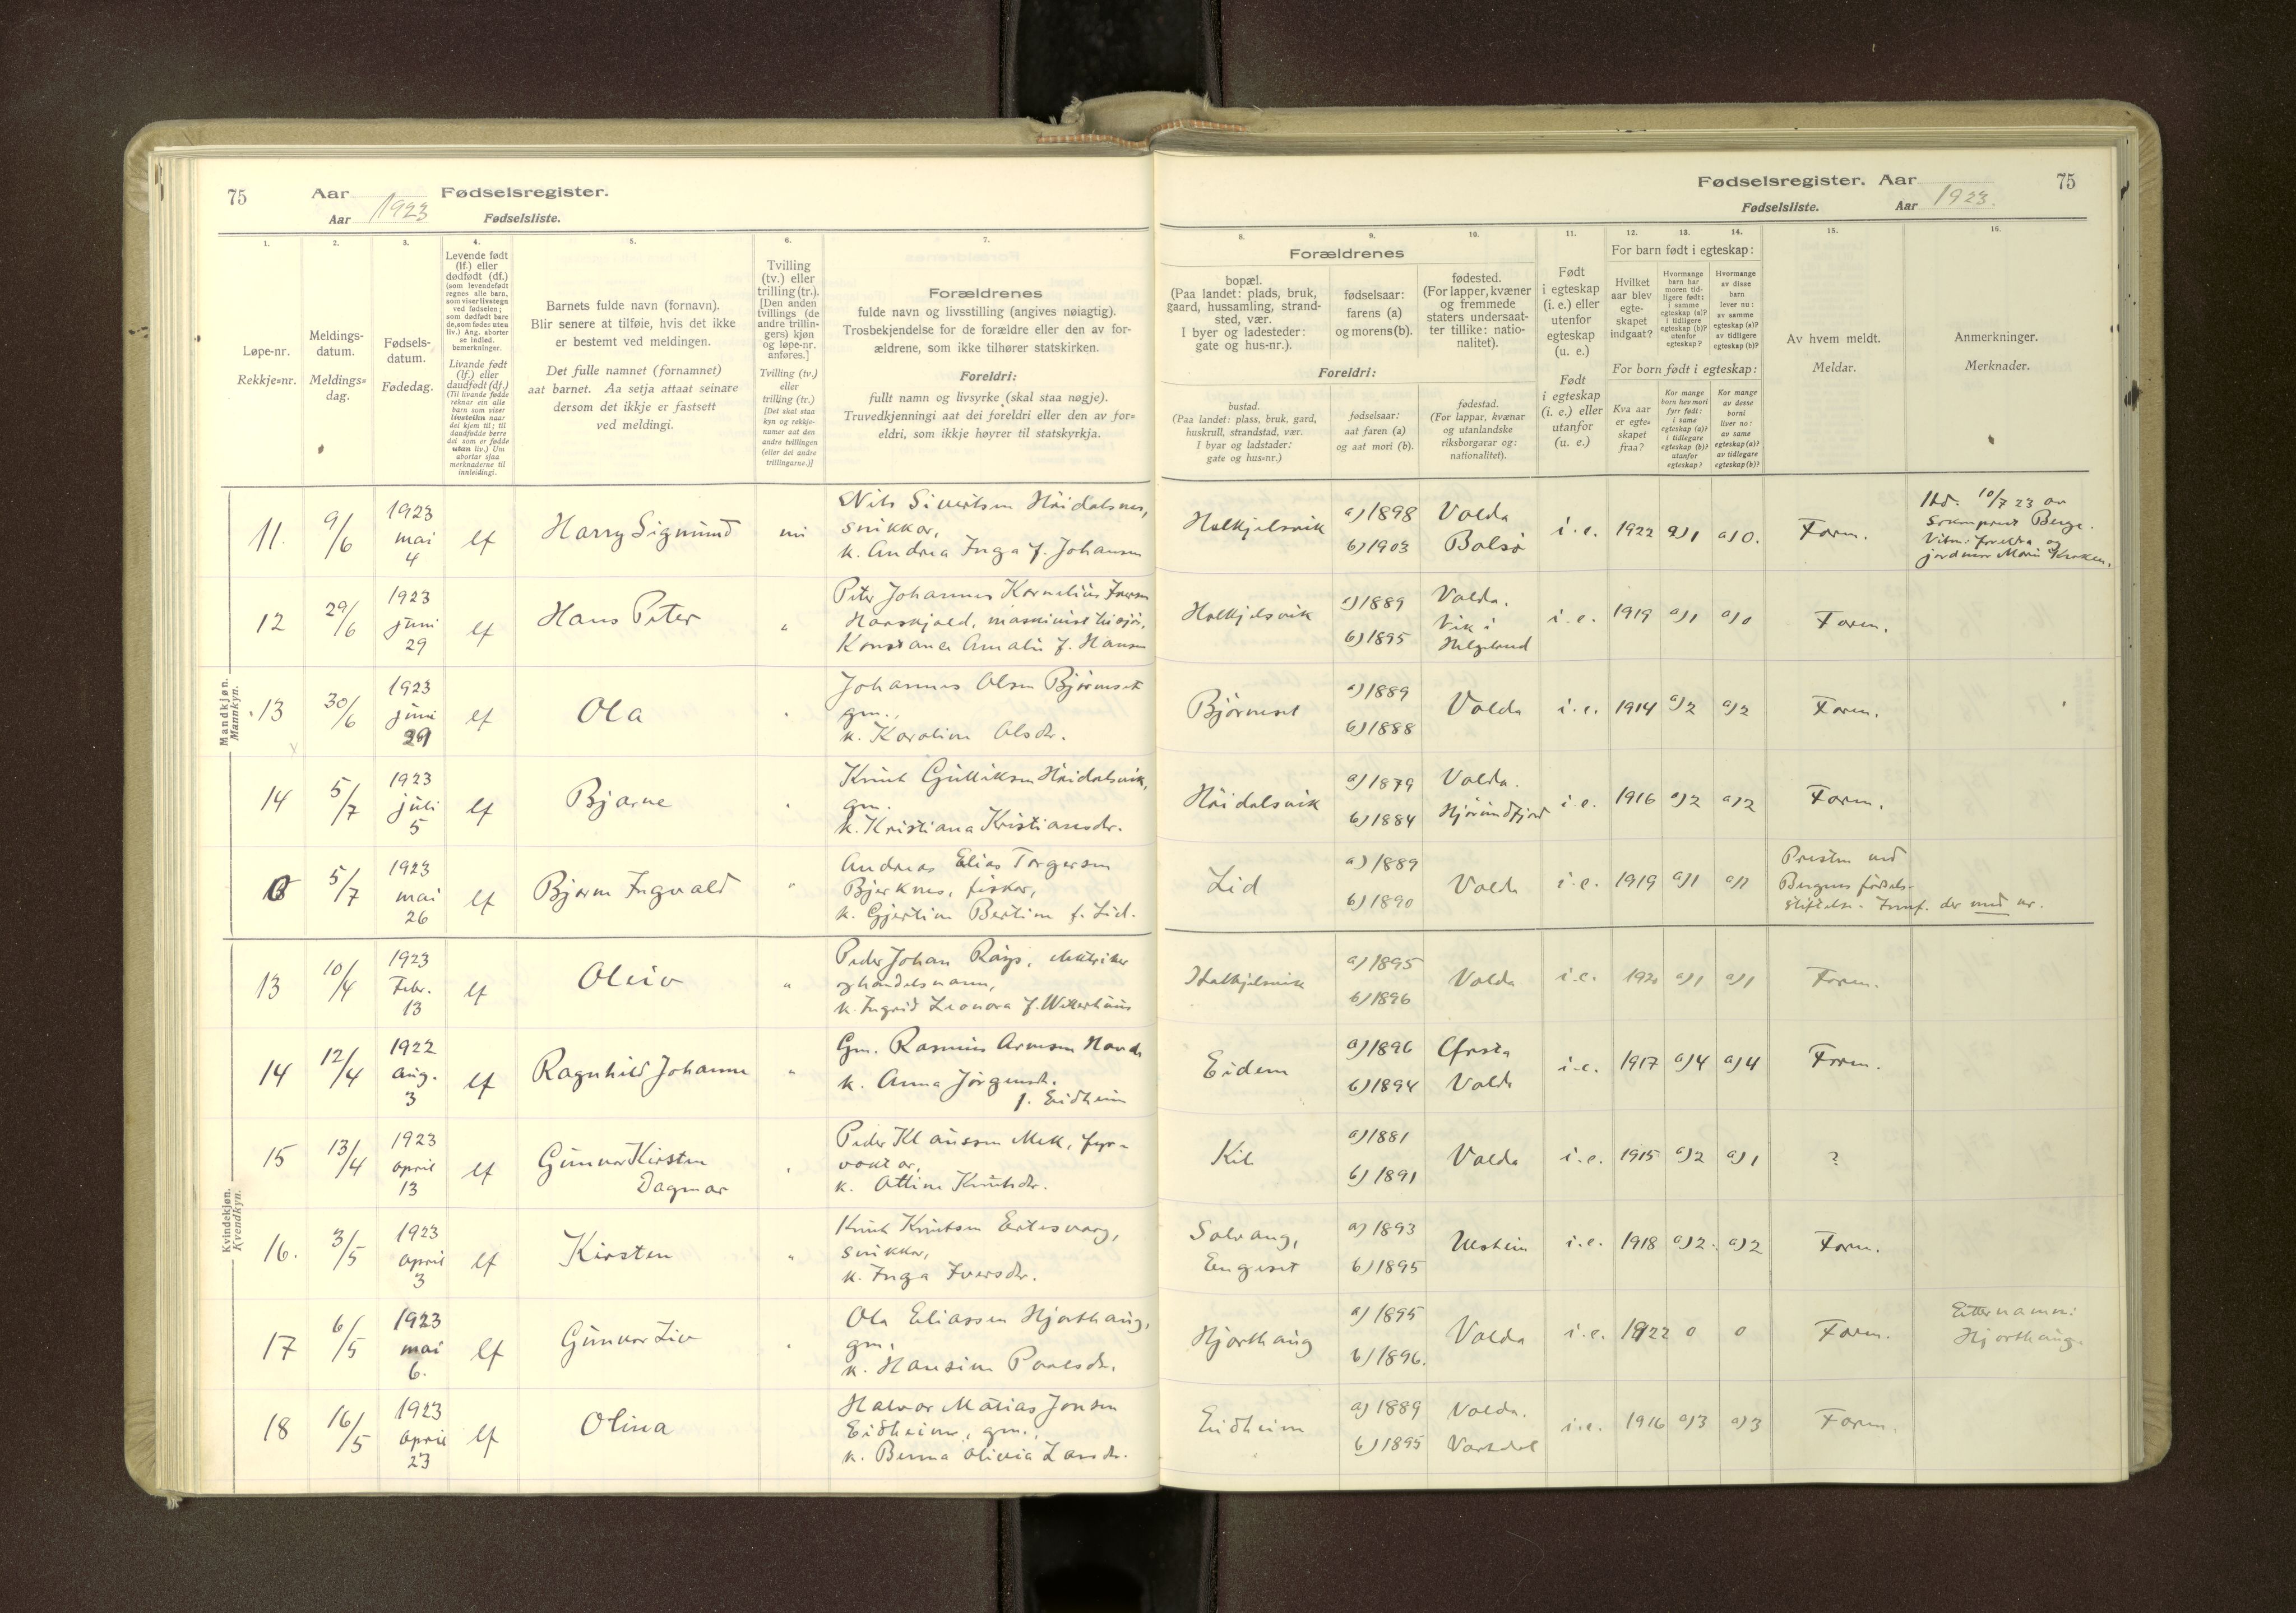 75
Aar
Fødselsregister.
Aar 1923
Fødselsliste.
1.
2.
3.
4.
5.
6.
7.
Løpe-nr.
Rekkje=nr.
Meldings-
datum.
Meldings=
dag.
Fødsels-
datum.
Fødedag.
Levende født
(lf.) eller
dødfødt (df.)
(som levendefødt
regnes alle barn,
som viser livstegn
ved fødselen;
som dødfødt bare
de, som fødes uten
liv.) Ang. aborter
se indled.
bemerkninger.
Livande født
(lf.) eller
daudfødt (df.)
(Til livande fødde
reknar ein alle
barn som viser
livsteikn naar
dei kjem til; til
daudfødde berre
dei som er fødde
utan liv.) Um
abortar sjaa
merknaderne til
innleidingi.
Barnets fulde navn (fornavn).
Blir senere at tilføie, hvis det ikke
er bestemt ved meldingen.
Det fulle namnet (fornamnet)
aat barnet. Aa setja attaat seinare
dersom det ikkje er fastsett
ved meldingi.
Tvilling
(tv.) eller
trilling (tr.).
[Den anden
tvillings (de
andre trillin-
gers) kjøn
og løpe-nr.
anføres.]
Tvilling (tv.)
eller
trilling (tr.)
[Det skal staa
kyn og rekkje-
numer aat den
andre tvillingen
(eller dei andre
trillingarne.)]
Forældrenes
fulde navn og livsstilling (angives nøiagtig).
Trosbekjendelse for de forældre eller den av for-
ældrene, som ikke tilhører statskirken.
Foreldri:
fullt namn og livsyrke (skal staa nøgje).
Truvedkjenningi aat dei foreldri eller den av for=
eldri, som ikkje høyrer til statskyrkja.
Mandkjøn.
Mannkyn.
11.
9/6
1923
mai
4
lf
Harry Sigmund
Nils Sivertsen Höidalsnes,
snikkar,
k. Andrea Inga f. Johansen
12
29/6
1923
juni
29
lf
Hans Peter
"
Peter Johannes Kornelius Iversen
Konstance Amalie f. Hansen
13
30/6
1923
juni
29
lf
Ola
"
Johannes Olsen Björneset
gm.,
k. Karoline Olsdr.
14
5/7
1923
juli
5
lf
Bjarne
"
Knut Gulliksen Höidalsvik,
gm.
k. Kristiana Kristiansdr.
5/7
1923
mai
26
lf
Bjarne Ingvald
"
Andreas Elias Torgersen
Bjerknes, fiskar,
k. Gjertine Bertine f. Lid.
Kvindekjøn.
Kvendkyn.
13
10/4
1923
Febr.
13
lf
Oleiv
"
Peder Johan Röys,
oghandelsmann,
k. Ingrid Leonora f.
14
12/4
1922
aug.
3
lf
Ragnhild Johanne
"
Gm. Rasmus Arnesen
k. Anna Jörgensdr.
f. Eidheim
15
13/4
1923
april
13
lf
Gunvor Kirsten
Dagmar
"
Peder Klausen Mek, fyr-
vaktar,
k. Ottine Knutsdr.
16.
3/5
1923
april
3
lf
Kirsten
"
Knut Knutsen Eitesvaag,
snikkar,
k. Inga Iversdr.
17
6/5
1923
mai
6.
lf
Gunvor Liv
"
Ola Eliassen Hjorthaug,
gm.
k. Hansine Paalsdr.
18
16/5
1923
april
23
lf
Olina
Halvor Matias Jonsen
Eidheim, gm.,
k. Berma Olivia Larsdr.
Fødselsregister. Aar
75
Fødselsliste.
Aar 1923.
8.
9.
10.
11.
12.
13.
14.
15.
16.
Forældrenes
bopæl.
(Paa landet: plads, bruk,
gaard, hussamling, strand-
sted, vær.
I byer og ladesteder:
gate og hus-nr.).
fødselsaar:
farens (a)
og morens(b).
fødested.
(For lapper, kvæner
og fremmede
staters undersaat-
ter tillike: natio-
nalitet).
Foreldri:
bustad.
(Paa landet: plass, bruk, gard,
huskrull, strandstad, vær.
I byar og ladstader:
gate og hus-nr.)
fødselsaar:
aat faren (a)
og aat mori (b).
fødestad.
(For lappar, kvænar
og utanlandske
riksborgarar og:
nationalitet).
Født
i egteskap
(i. e.) eller
utenfor
egteskap
(u. e.)
Født
i egteskap
(i. e.) eller
utanfor
(u. e.)
For barn født i egteskap:
Hvilket
aar blev
egte-
skapet
indgaat?
Hvormange
barn har
moren tid-
ligere født:
i samme
egteskap (a)?
i tidligere
egteskap (b)?
utenfor
egteskap?
Hvormange
av disse
barn
lever nu:
av samme
egteskap (a)?
av tidligere
egteskap (b)?
For born født i egteskap:
Kva aar
er egte-
skapet
fraa?
Kor mange
born hev mori
fyrr født:
i same
egteskap (a)?
i tidlegare
egteskap (b)?
utanfor
egteskap?
Kor mange
av desse
borni
liver no:
av same
egteskap (a)?
av tidlegare
egteskap (b)?
Av hvem meldt.
Meldar.
Anmerkninger.
Merknader.
Halkjelsvik
a) 1898
b) 1903
Volda
Bolsö
i. e.
1922
a) 1
a) 0.
Foren.
10/7 23 av
Sokneprest Berge.
Vitne: foreldra og
jordmor Marie Kroken.
Halkjelsvik
a) 1889
b) 1895
Volda.
Vik i
Helgeland
i. e.
1919
a) 1
a) 0
Foren.
Björneset
a) 1889
b) 1888
Volda
i. e.
1914
a) 2
a) 2
Foren.
Höidalsvik
a) 1879
b) 1884
Volda.
Hjörundfjord
i. e.
1916
a) 2
a) 2
Foren.
Lid
a) 1889
b) 1890
Volda
i. e.
1919
a) 1
a) 1
Presten ved
Bergens födsels-
stiftelse.
Halkjelsvik
a) 1895
b) 1896
Volda
i. e.
1920
a) 1
a) 1
Foren.
Eidem
a) 1896
b) 1894
Örsta
Volda
i. e.
1917
a) 4
a) 4
Foren.
Kil
a) 1881
b) 1891
Volda
i. e.
1915
a) 2
a) 1
?
Solvang,
Engeset
a) 1893
b) 1895
Ulstein
i. e.
1918
a) 2.
a) 2
Foren.
Hjorthaug
a) 1895
b) 1896.
Volda
i. e.
1922
0
0
Foren.
Etternamn:
Hjorthaug.
Eidheim
a) 1889
b) 1895
Volda.
Vartdal
i. e.
1916
a) 3
a) 3
Foren.